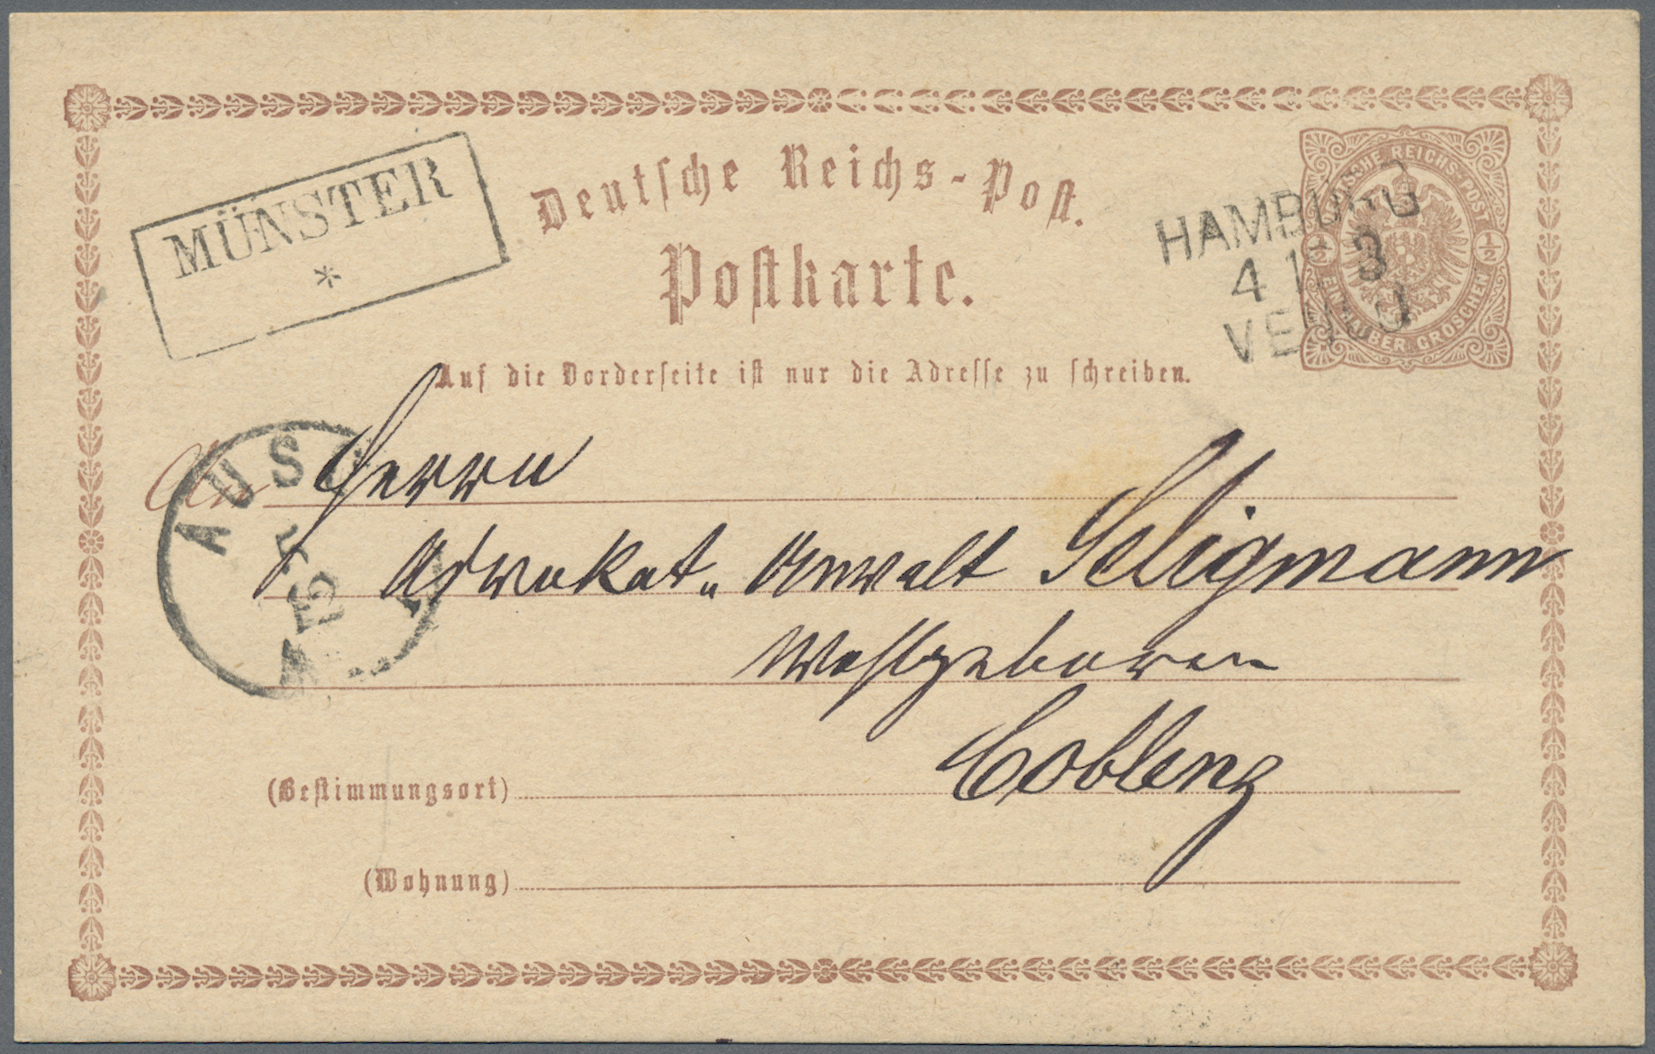 Deutsche Reichs-Post.
Postkarte.
MÜNSTER
*
HAMBURG
4 12 3
DEUTSCHE REICHS-POST
1/2 1/2
EIN HALBER GROSCHEN
Auf die Vorderseite ist nur die Adresse zu schreiben.
An Herrn
Advokat-Anwalt Seligmann
Wohlgeboren
Coblenz
AUS
5
12
(Bestimmungsort)
(Wohnung)